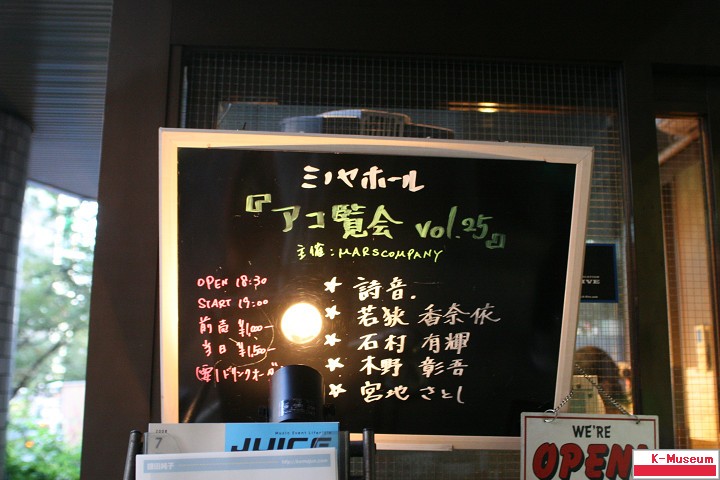 ミノヤホール
『アコ覧会 vol.25』
主催：MARSCOMPANY
OPEN 18:30
START 19:00
前売 ¥1,000-
当日 ¥1,500-
☆ 詩音.
☆ 若狭 香奈依
☆ 石村 有輝
☆ 木野 彰吾
☆ 宮地 さとし
7
JUICE
WE'RE
OPEN!
K-Museum